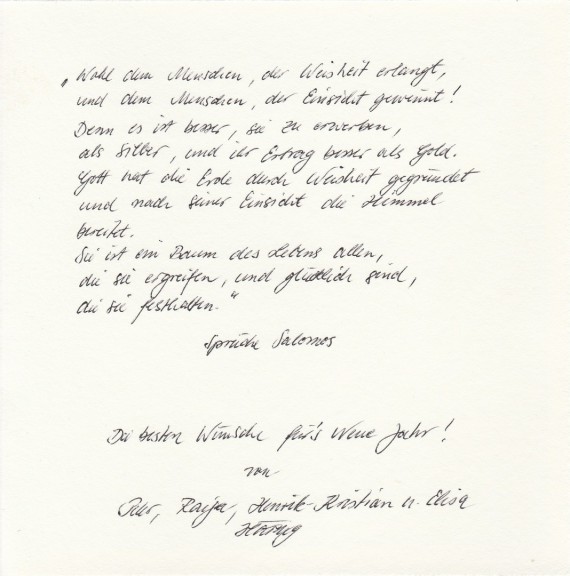 „Wohl dem Menschen, der Weisheit erlangt,
und dem Menschen, der Einsicht gewinnt!
Denn es ist besser, sie zu erwerben,
als Silber, und ihr Ertrag besser als Gold.
Gott hat die Erde durch Weisheit gegründet
und nach seiner Einsicht die Himmel
bereitet.
Sie ist ein Baum des Lebens allen,
die sie ergreifen, und glücklich sind,
die sie festhalten."
Sprüche Salomos
Die besten Wünsche für's Neue Jahr!
von
Raija, Henrik-Kristian u. Elisa